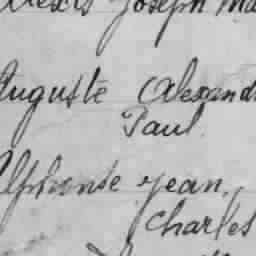 Alexis Joseph Ma
Auguste Alexand
Paul
Alphonse Jean,
Charles